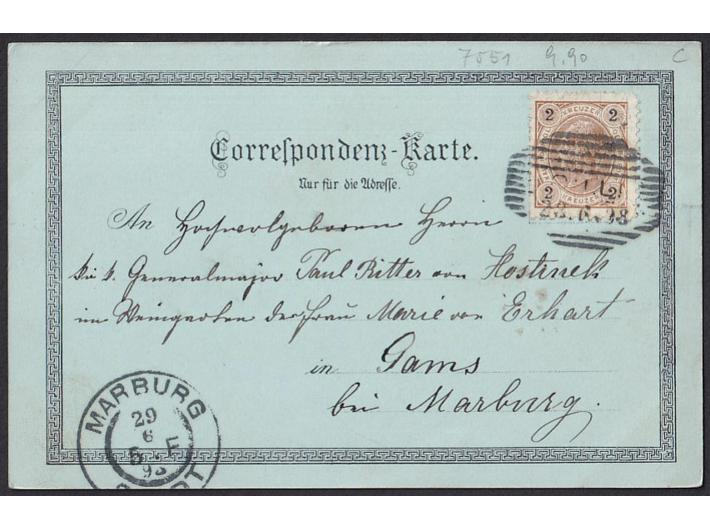 7551 9.90 C
2 KREUZER 2
2 2
KREUZER
Correſpondenz-Karte.
Nur für die Adreſſe.
An Hochwolgeboren Herrn
k. Generalmajor Paul Ritter von Hostinek
im Weingarten der Frau Marie von Erhart
in Gams
bei Marburg.
6 98
MARBURG
29
6
98